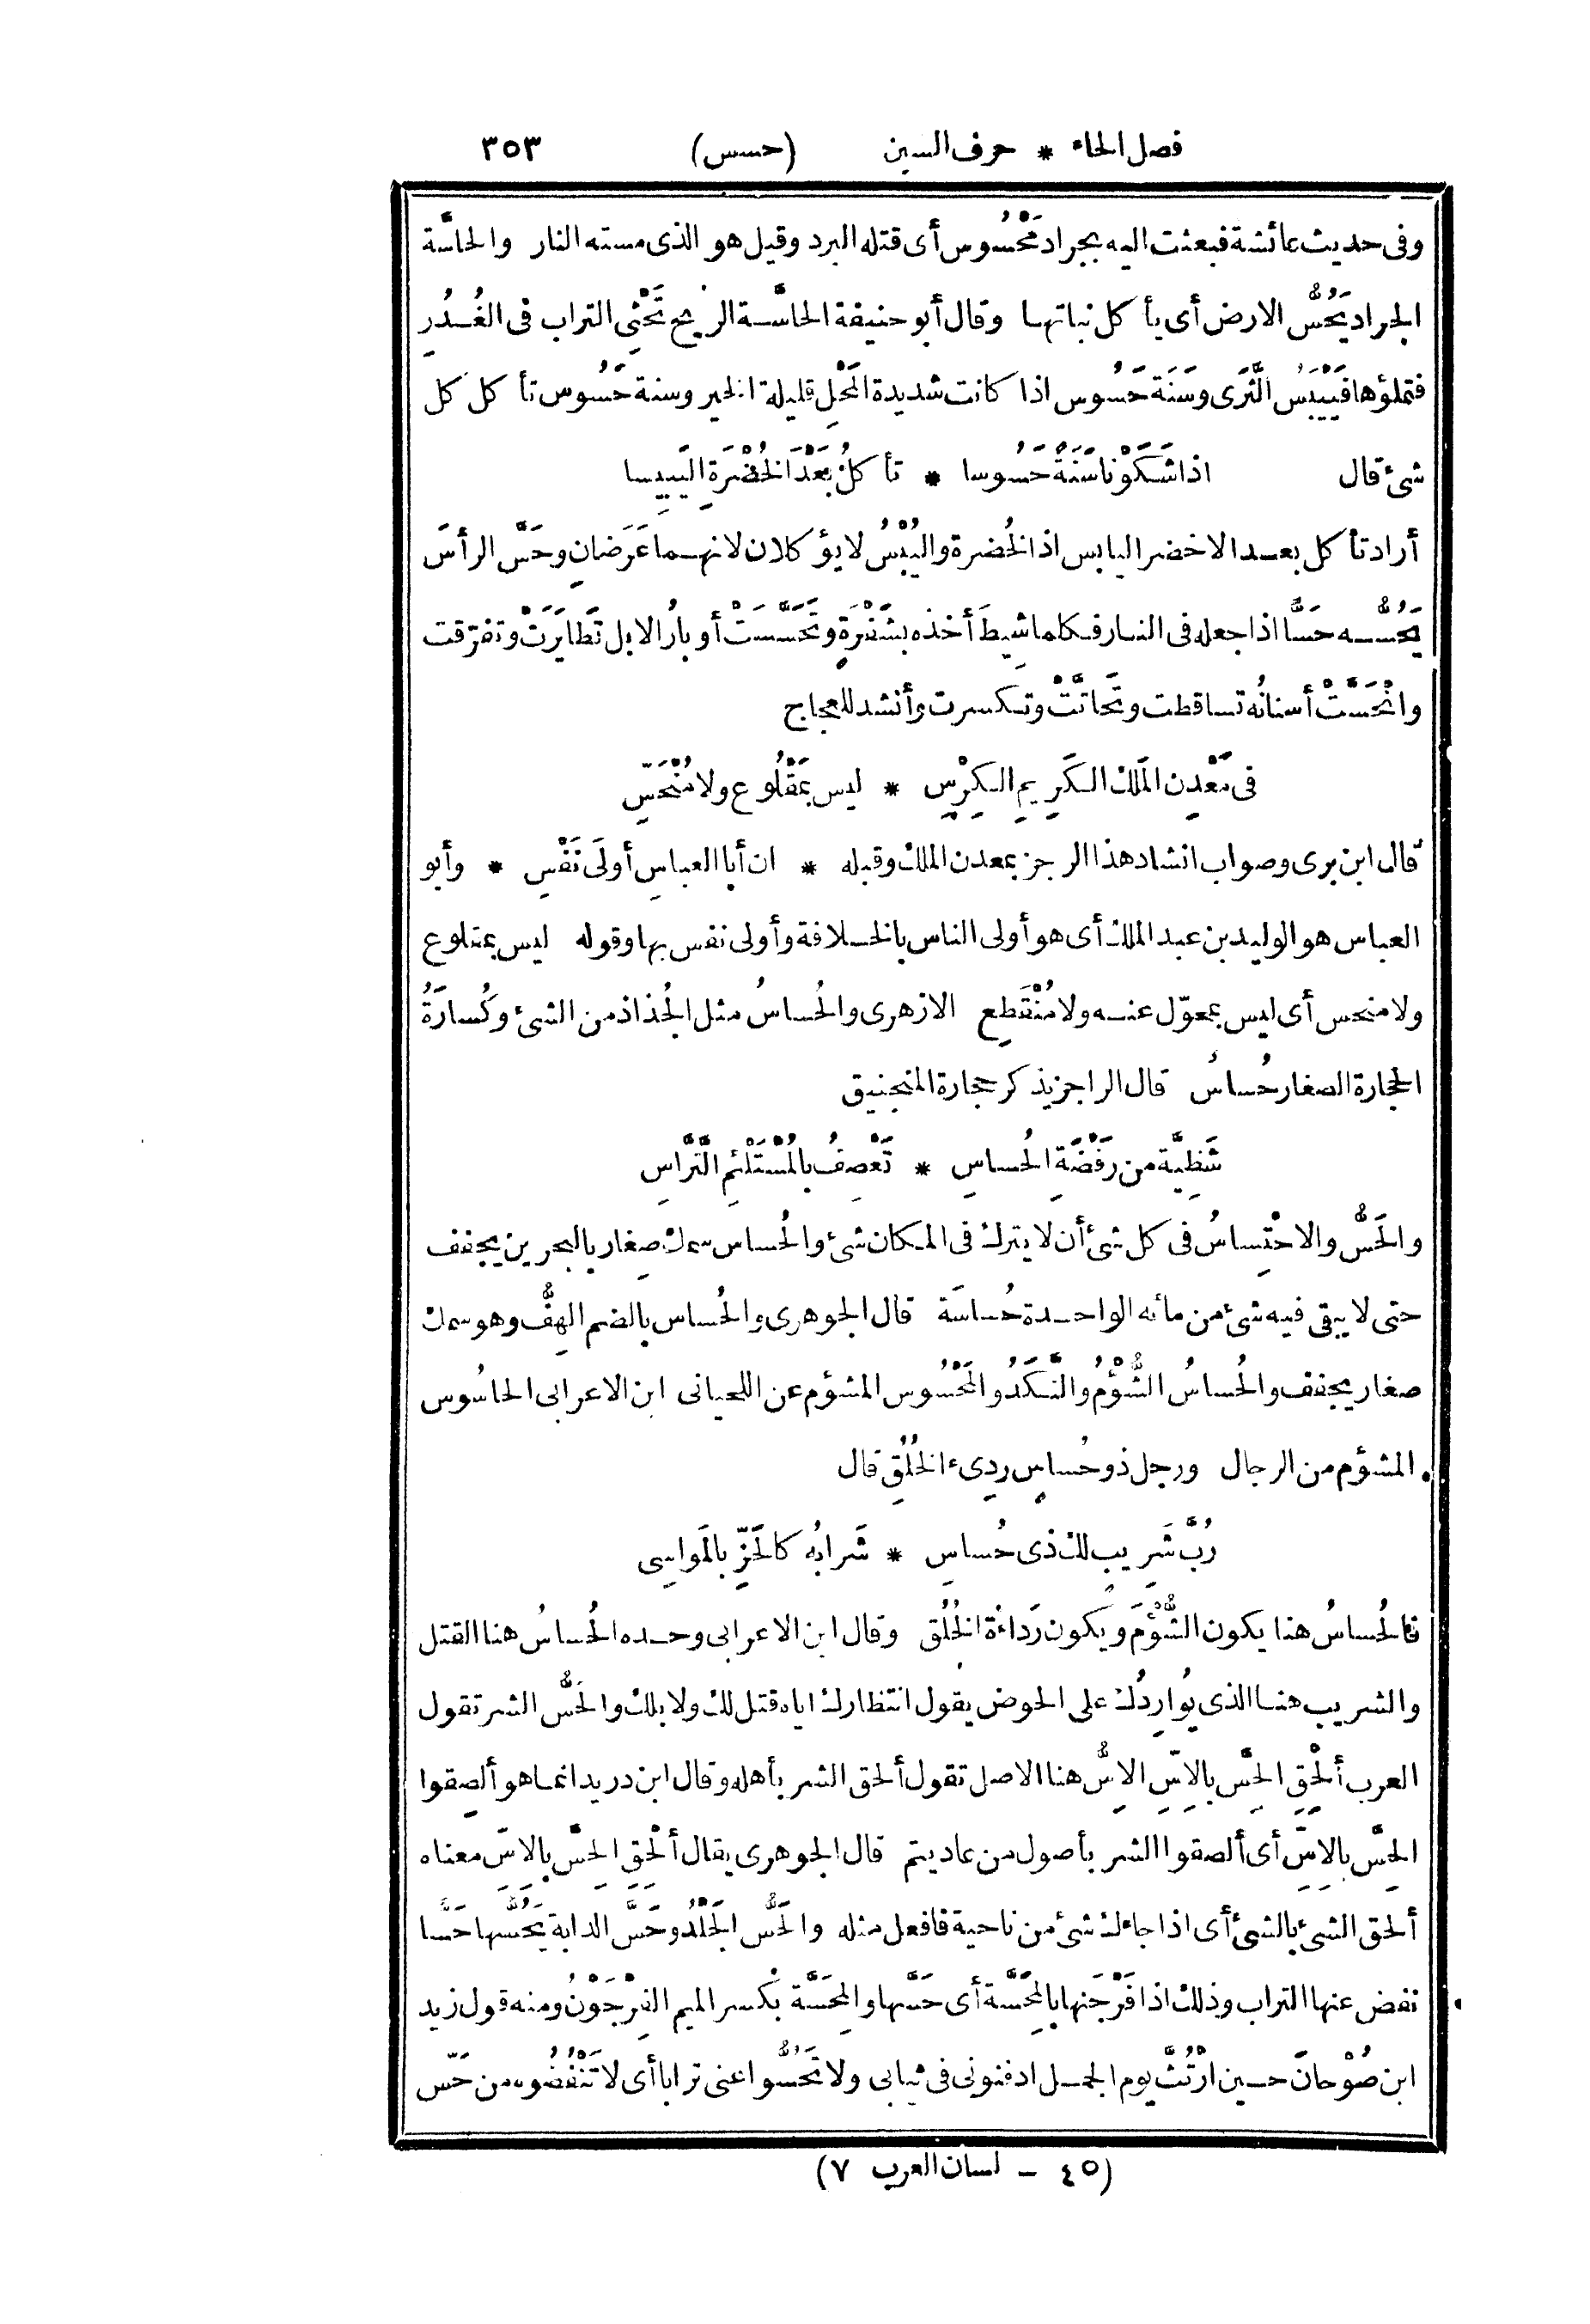 فصل الحاء * حرف السين (حسس) ٣٥٣
وفى حديث عائشة فبعثت اليه بجراد مَحْسُوس أى قتله البرد وقيل هو الذى مسته النار والحاسَّة
الجراد يَحُسُّ الارض أى يأكل نباتها وقال أبو حنيفة الحاسَّة الريح تَحْثِى التراب فى الغُدُرِ
فتملؤها فَيَيْبَسُ الثَّرَى وسَنَة حَسُوس اذا كانت شديدة المَحْلِ قليلة الخير وسنة حَسُوس تأكل كل
شئ قال اذا شَكَوْنا سَنَةً حَسُوسا * تأكلُ بَعْدَ الخُضْرَةِ اليَبِيسا
أراد تأكل بعد الاخضر اليابس اذ الخُضرة واليُبْسُ لا يؤكلان لانهما عَرَضانِ وحَسَّ الرأسَ
يَحُسُّه حَسًّا اذا جعله فى النار فكلما شِيطَ أخذه بشَفْرَةٍ وتَحَسَّسَتْ أوبارُ الابل تَطايَرَتْ وتفرّقت
وانْحَسَّتْ أسنانُه تساقطت وتَحاتَّتْ وتكسرت وأنشد للعجاج
فى مَعْدِن المَلْك الكَرِيمِ الكِرْسِ * ليس بمَقْلُوع ولا مُنْحَسِّ
قال ابن برى وصواب انشاد هذا الرجز بمعدن الملك وقبله * ان أبا العباسِ أولَى نَفْسِ * وأبو
العباس هو الوليد بن عبد الملك أى هو أولى الناس بالخلافة وأولى نفس بها وقوله ليس بمقلوع
ولا منحس أى ليس بمحوّل عنه ولا مُنْقَطِع الازهرى والحُساسُ مثل الجُذاذ من الشئ وكُسارَةُ
الحجارة الصغار حُساسٌ قال الراجز يذكر حجارة المنجنيق
شَظِيَّة من رَفْضَةِ الحُساسِ * تَعْصِفُ بالمُسْتَلْئِمِ التَّرَّاسِ
والحَسُّ والاحْتِساسُ فى كل شئ أن لا يترك فى المكان شئ والحُساس سمك صِغار بالبحرين يجفف
حتى لا يبقى فيه شئ من مائه الواحدة حُساسَة قال الجوهرى والحُساس بالضم الهِفُّ وهو سمك
صغار يجفف والحُساسُ الشُّؤْمُ والنَّكَدُ والمَحْسُوس المشؤم عن اللحيانى ابن الاعرابى الحاسُوس
المشؤم من الرجال ورجل ذو حُساسٍ ردِىء الخُلُقِ قال
رُبَّ شَرِيب لك ذى حُساسِ * شَرابُه كالحَزِّ بالمَواسِى
فالحُساسُ هنا يكون الشُّؤْمَ ويكون رَداءَةَ الخُلُق وقال ابن الاعرابى وحده الحُساسُ هنا القتل
والشريب هنا الذى يُوارِدُك على الحوض يقول انتظارك اياه قتل لك ولابلك والحَسُّ الشر تقول
العرب ألْحِقِ الحِسَّ بالاِسِّ الاِسُّ هنا الاصل تقول ألحق الشر بأهله وقال ابن دريد انما هو ألصِقوا
الحِسَّ بالاِسِّ أى ألصقوا الشر بأصول من عاديتم قال الجوهرى يقال ألْحِقِ الحِسَّ بالاِسِّ معناه
ألحق الشئ بالشئ أى اذا جاءك شئ من ناحية فافعل مثله والحَسُّ الجَلْدُ وحَسَّ الدابة يَحُسُّها حَسًّا
نفض عنها التراب وذلك اذا فَرْجَنها بالمِحَسَّة أى حَسَّها والمِحَسَّة بكسر الميم الفِرْجَوْنُ ومنه قول زيد
ابن صُوْحانَ حين ارْتُثَّ يوم الجمل ادفنونى فى ثيابى ولا تَحُسُّوا عنى ترابا أى لا تَنْفُضُوه من حَسّ
(٤٥ - لسان العرب ٧)